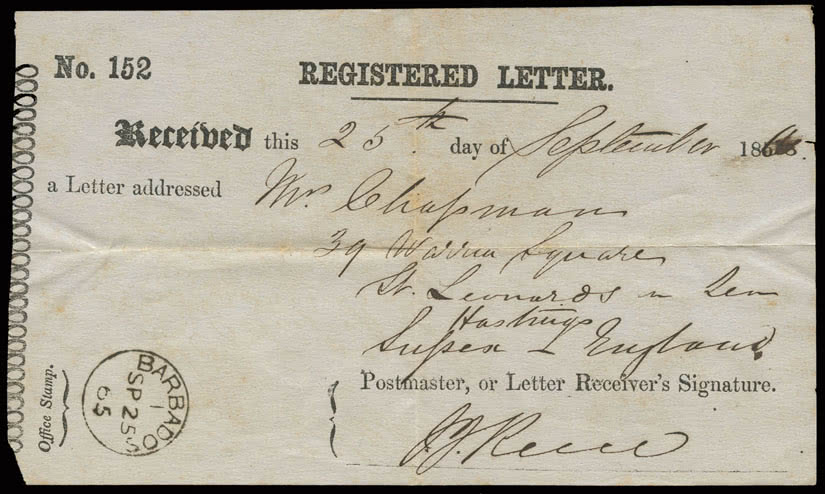 No. 152
REGISTERED LETTER.
Received this 25th day of September 18
a Letter addressed Mrs Chapman
39 Warrior Square
St. Leonards on Sea
Hastings
Sussex England
Postmaster, or Letter Receiver's Signature.
Office Stamp.
BARBADOS
1
SP 25
65